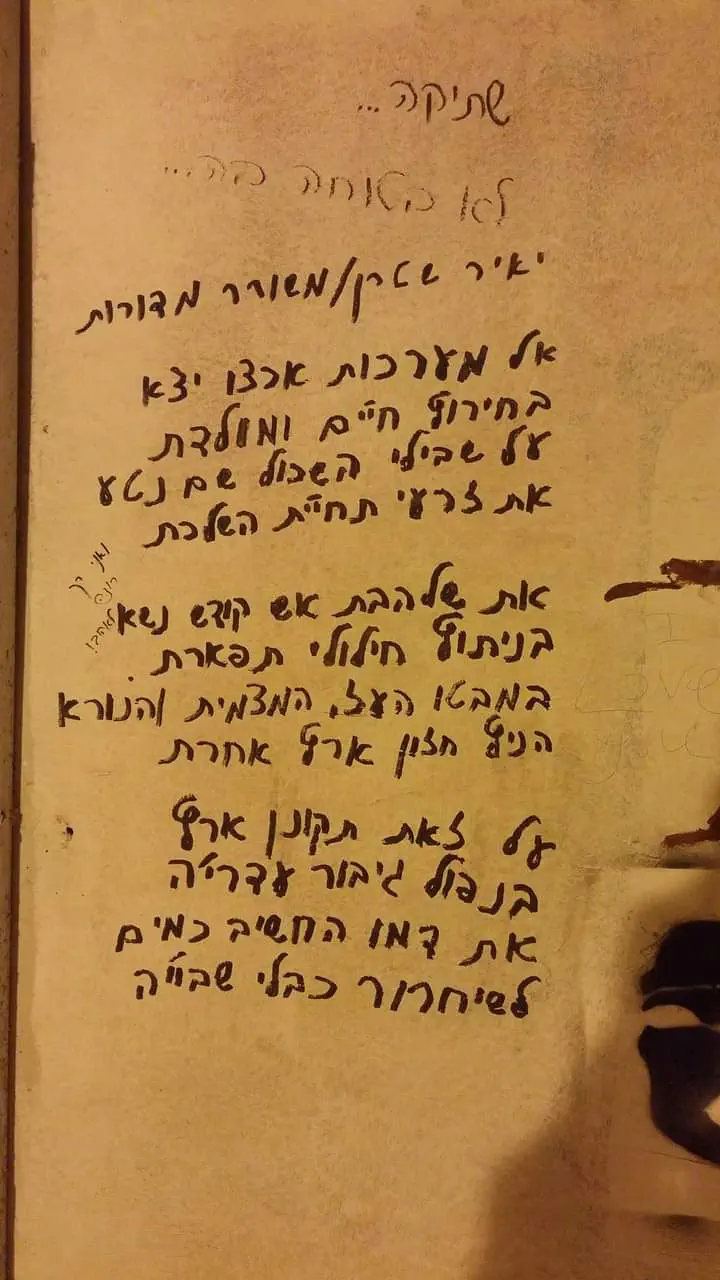 שתיקה...
לא בטוחה בזה...
יאיר שטרן/משורר מדורות
אל מערכות ארצו יצא
בחירוף חיים ומולדת
על שבילי השכול שם נטע
את זרעי תחיית השלכת
את שלהבת אש קודש נשא
בניתוץ חילולי תפארת
במבטו העז, המצמית והנורא
הניף חזון ארץ אחרת
על זאת תקונן ארץ
בנפול גיבור עדריה
את דמו החשיב כמים
לשיחרור כבלי שבויה
I
Love
you